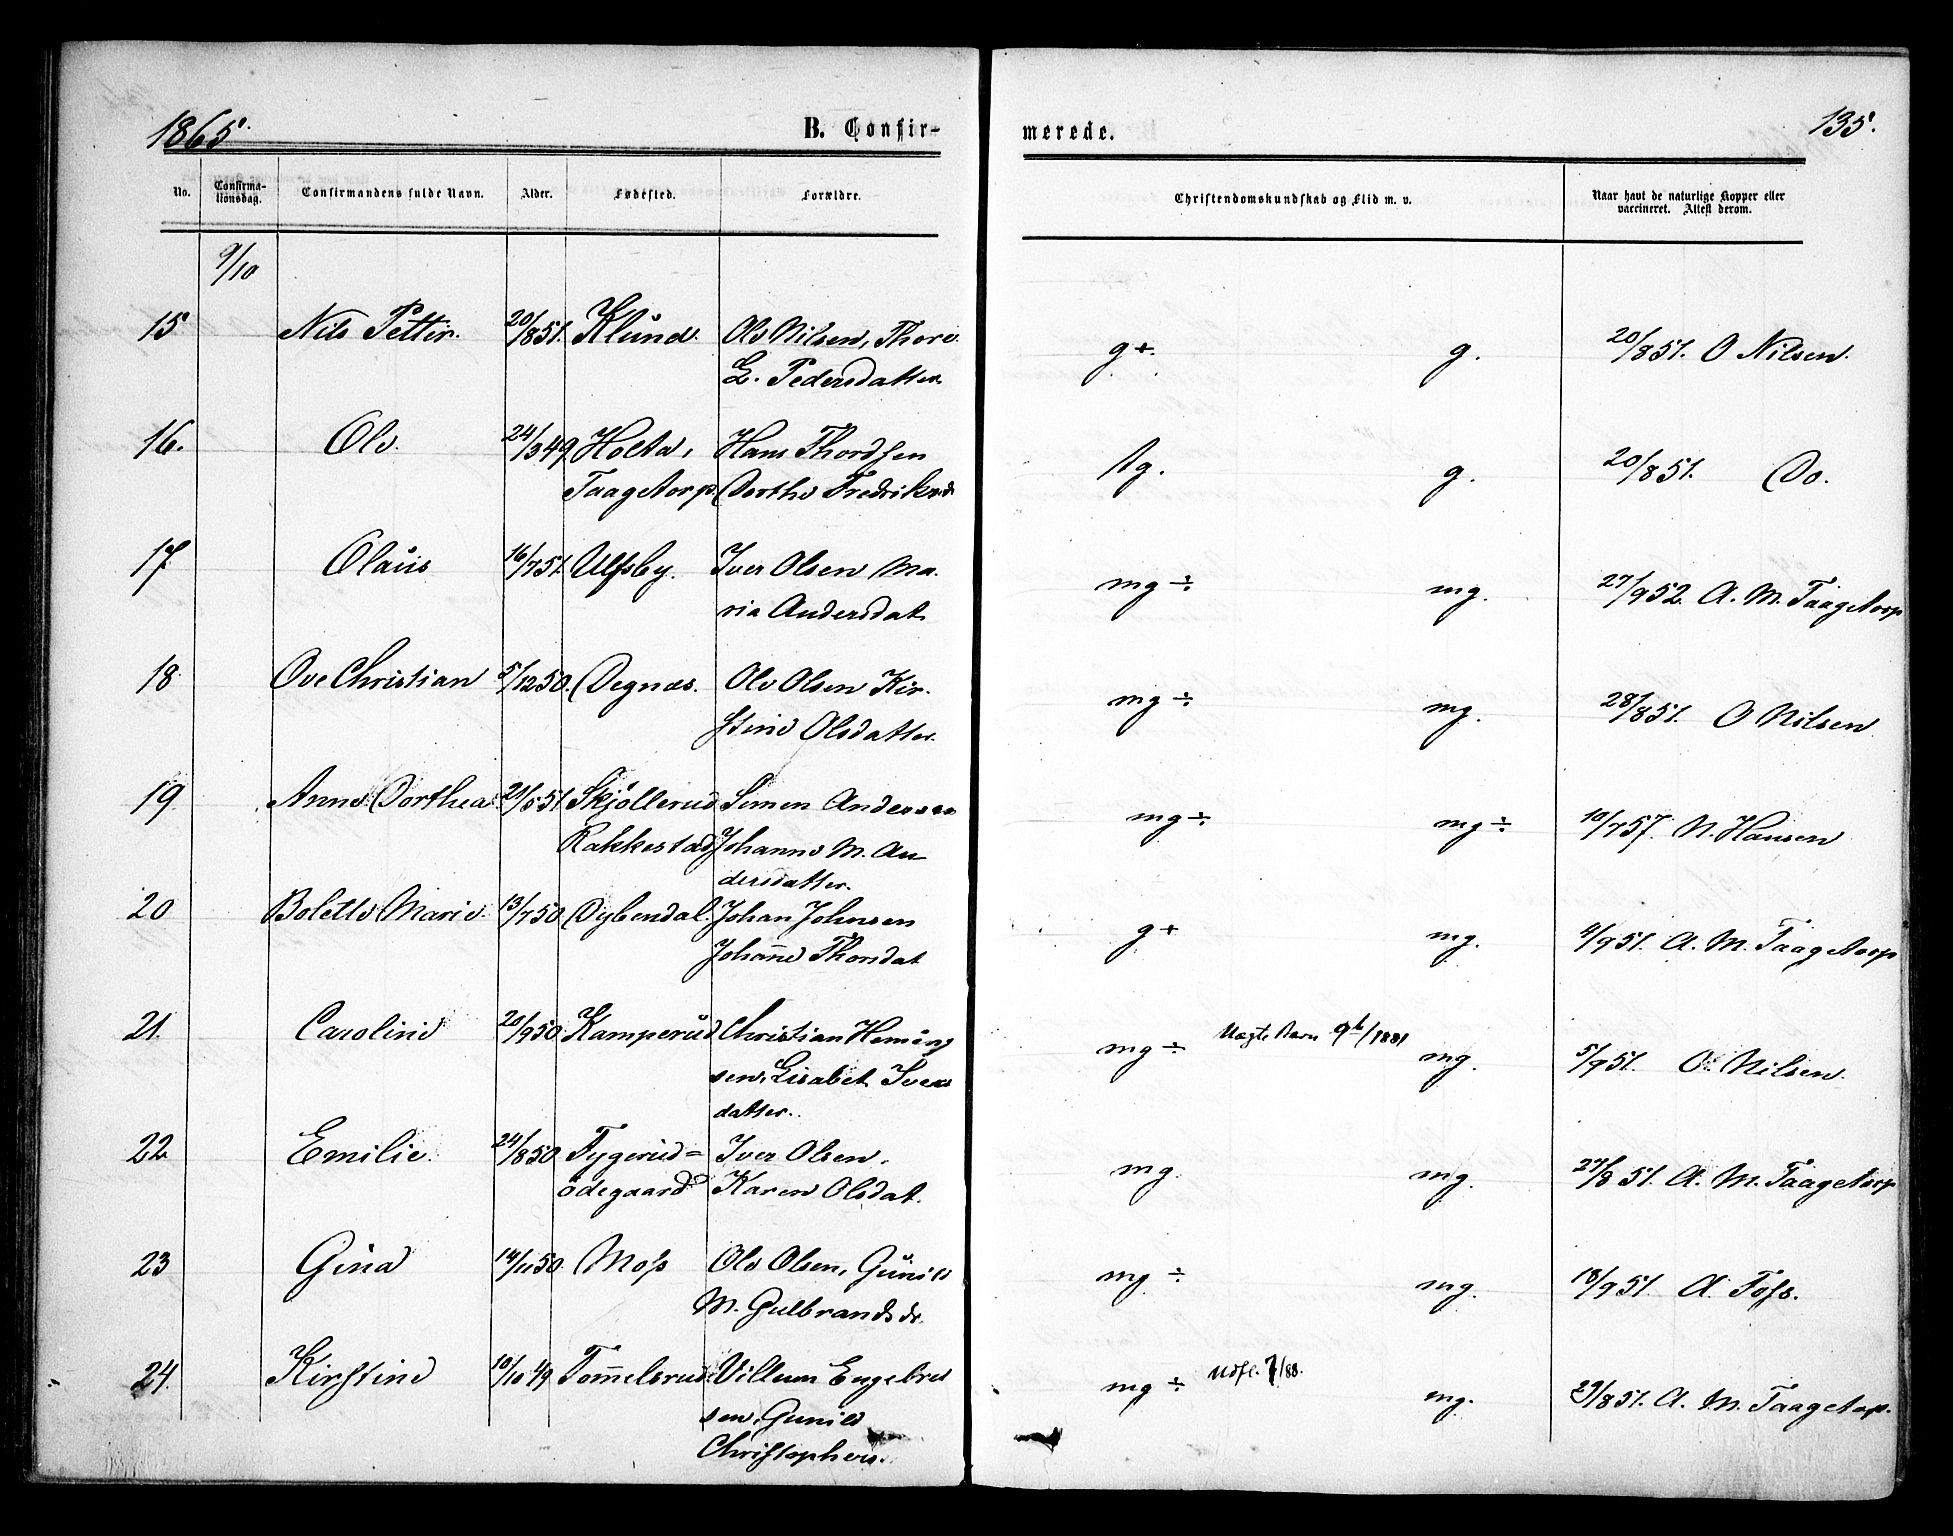 1865.
B. Confir-
merede.
135.
No.
Confirma-
tionsdag.
Confirmandens fulde Navn.
Alder.
Fødested.
Forældre.
Christendomskundskab og Flid m. v.
Naar havt de naturlige Kopper eller
vaccineret. Attest derom.
9/10
15 Nils Petter. 20/851. Klund. Ole Nilsen, Thore
L. Pedersdatter. g+. g. 20/851. O Nilsen.
16. Ole. 24/349 Holta, Hans Thordsen
Taagetorp Dorthe Fredriksd tg. g. 20/851. Do.
17 Olaus 16/751. Ulfsby. Iver Olsen Ma-
ria Andersdat. mg ÷ mg. 27/952. A. M. Taagetorp
18 Ove Christian 5/1250. Degnæs. Ole Olsen Kir-
stine Olsdatter. mg ÷ mg. 28/851. O Nilsen
19 Anne Dorthea 21/551. Skjøllerud Simen Andersen
Rakkestad Johanne M. An-
dersdatter. mg ÷ mg ÷ 10/757. N. Hansen
20 Bolette Marie. 13/750 Dybendal. Johan Johnsen
Johan̄e Thorsdat g+ mg. 4/951. A. M. Taagetorp
21. Caroline 20/950 Kamperud Christian Heming
sen, Lisabet Ivers
datter. mg ÷ Uægte Barn 9b/1881 mg. 5/951. O. Nilsen.
22 Emilie. 24/850 Tygerud=
ødegaard Iver Olsen,
Karen Olsdat. mg. mg. 27/851. A. M. Taagetorp
23 Gina 14/1150 Moss Ole Olsen, Gunild
M. Gulbrandsdr. mg ÷ mg. 18/951. A. Foss.
24. Kirstine 10/1049 Tom̄elsrud Villum Engebret
sen, Gunild
Christophers. mg ÷ Udfl. 7/88. mg. 29/851. A. M. Taagetorp.